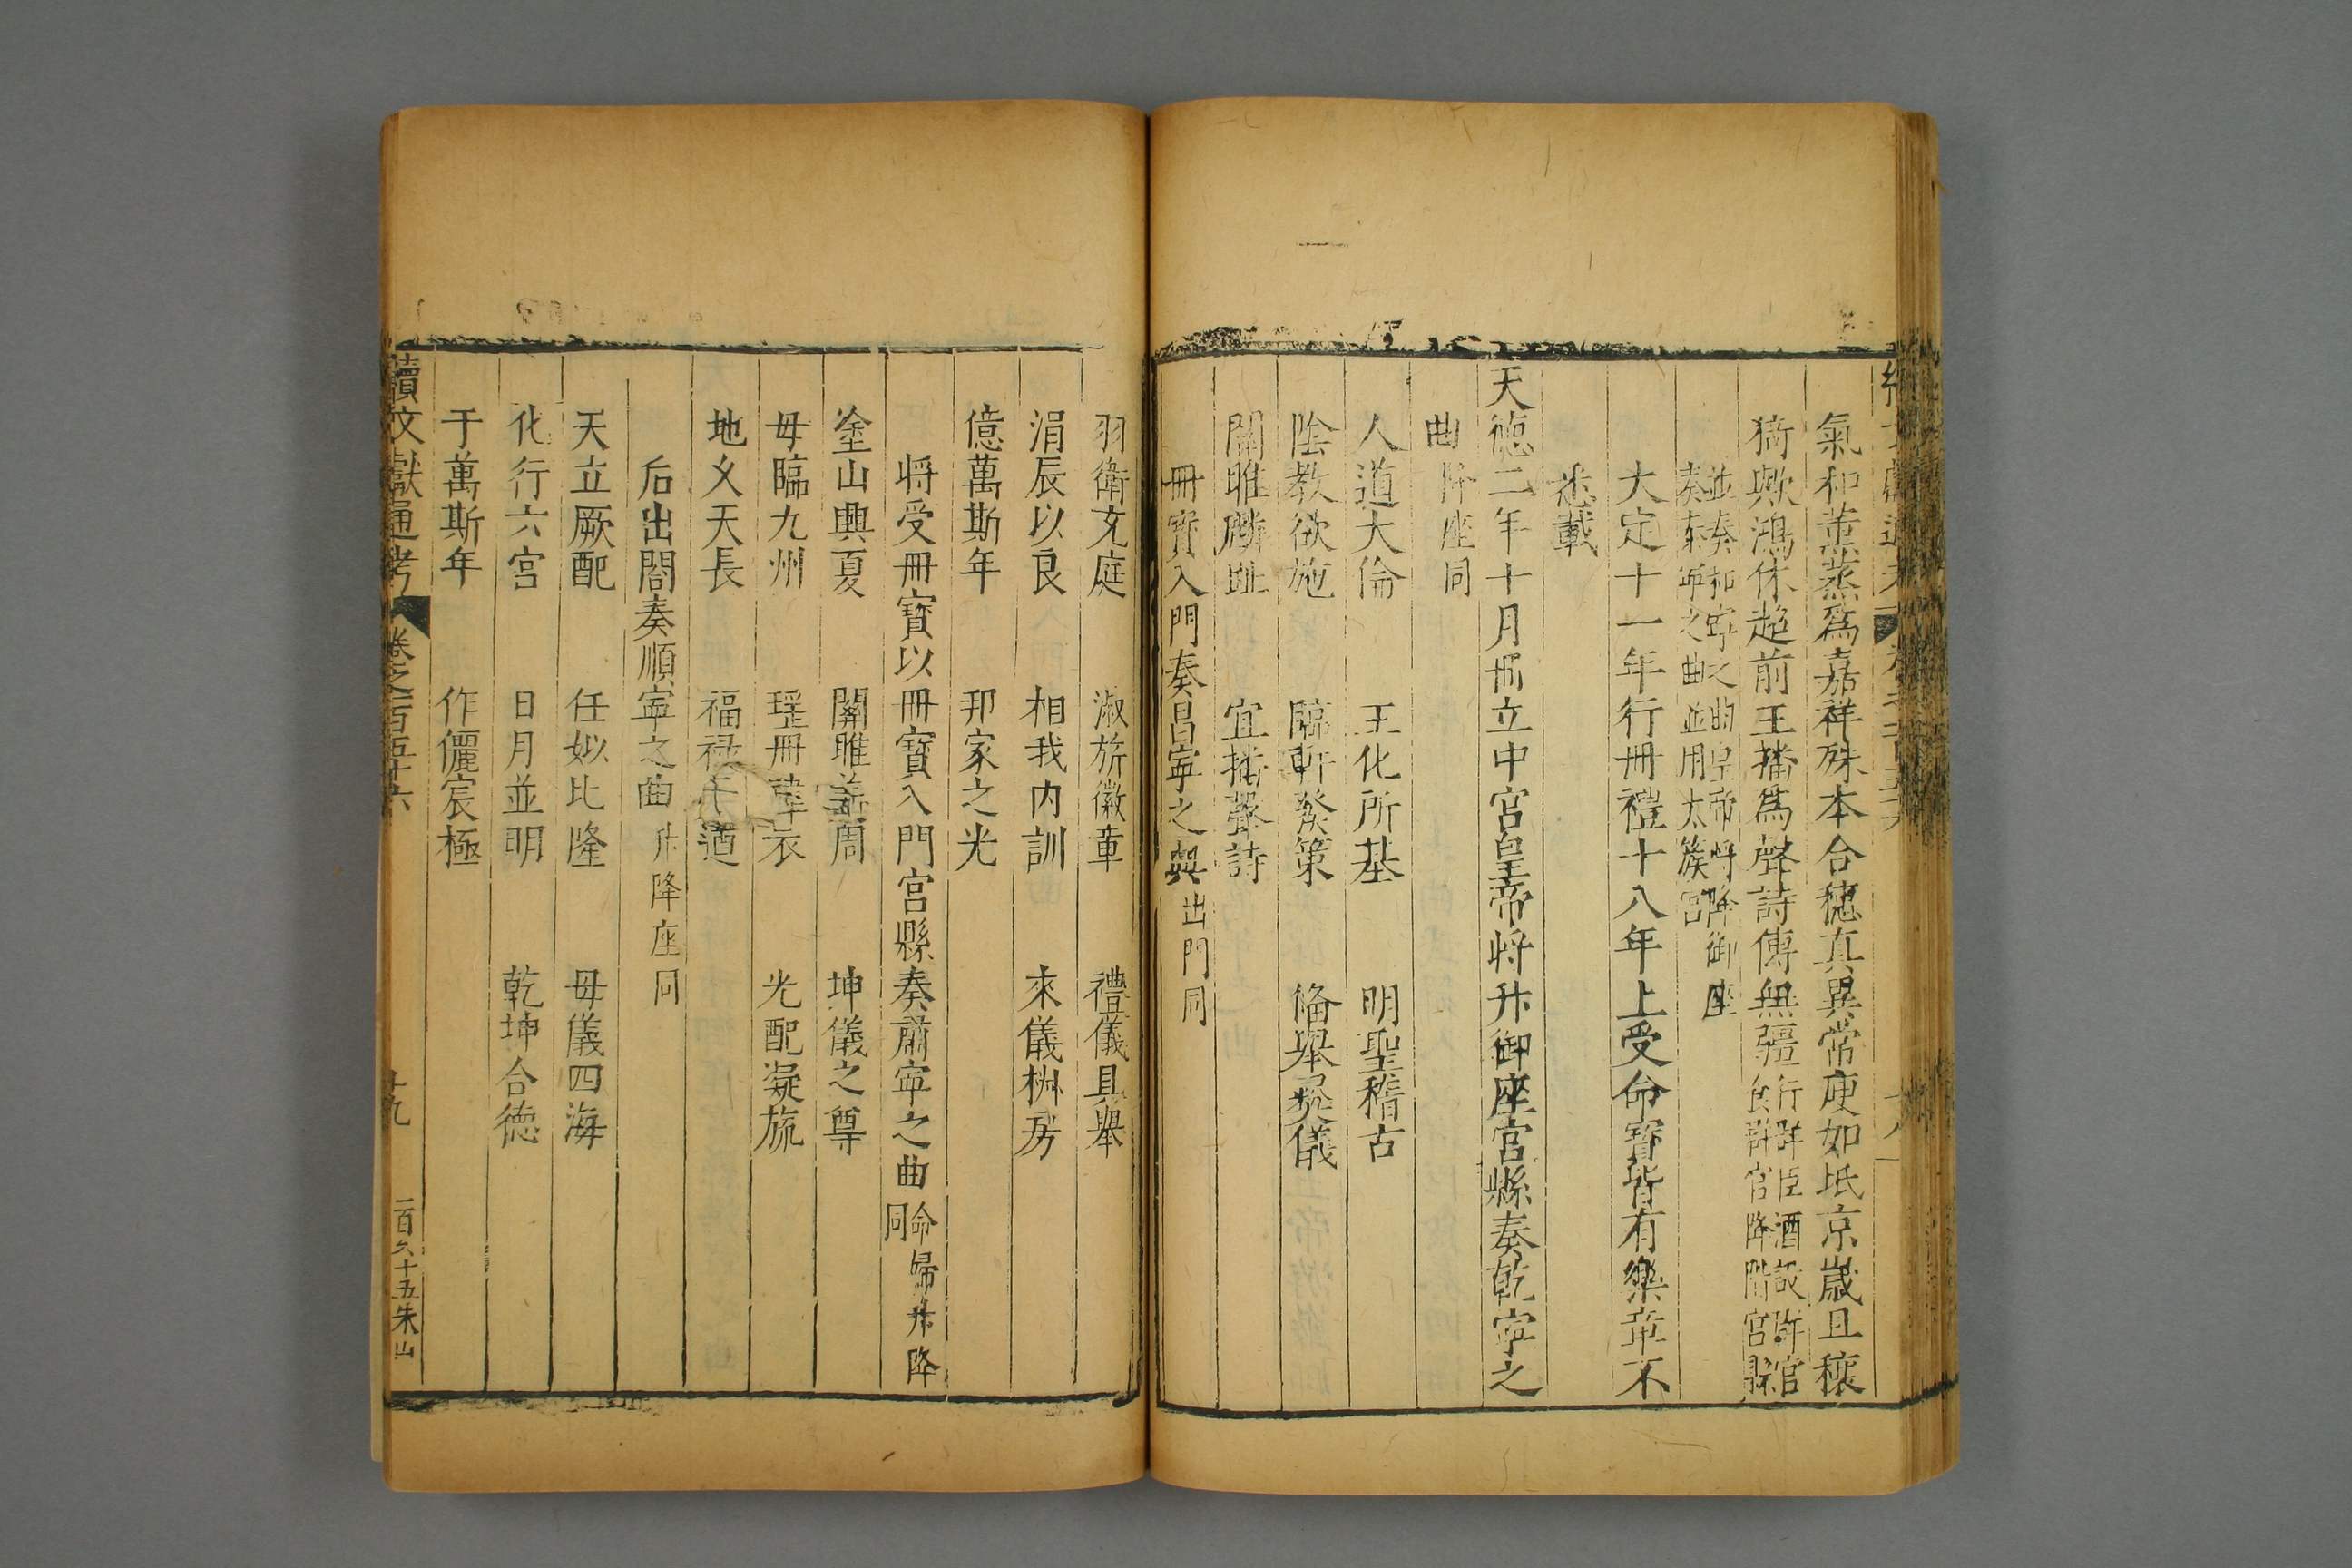 氣和薰蒸爲嘉祥殊本合穗真異常庾如坻京歲且穰
猗歟鴻休超前王播爲聲詩傳無疆行群臣酒設群官
食群官降階宮縣
並奏和寧之曲皇帝將降御座
奏泰寧之曲並用太簇宮
大定十一年行冊禮十八年上受命寶皆有樂章不
悉載
天德二年十月冊立中宮皇帝將升御座宮縣奏乾寧之
曲降座同
人道大倫 王化所基 明聖稽古
陰教欲施 臨軒發策 備舉彜儀
關雎麟趾 宜播聲詩
冊寶入門奏昌寧之與出門同
羽衛充庭 淑旂徽章 禮儀具舉
涓辰以良 相我内訓 來儀椒房
億萬斯年 邦家之光
将受冊寶以冊寶入門宮縣奏肅寧之曲命婦升降
同
塗山興夏 關雎盖周 坤儀之尊
母臨九州 瑤冊褘衣 光配凝旒
地乂天長 福禄千遒
后出閤奏順寧之曲升降座同
天立厥配 任姒比隆 母儀四海
化行六宮 日月並明 乾坤合德
于萬斯年 作儷宸極
續文獻通考 卷之一百五十六 十九 二百六十五朱山